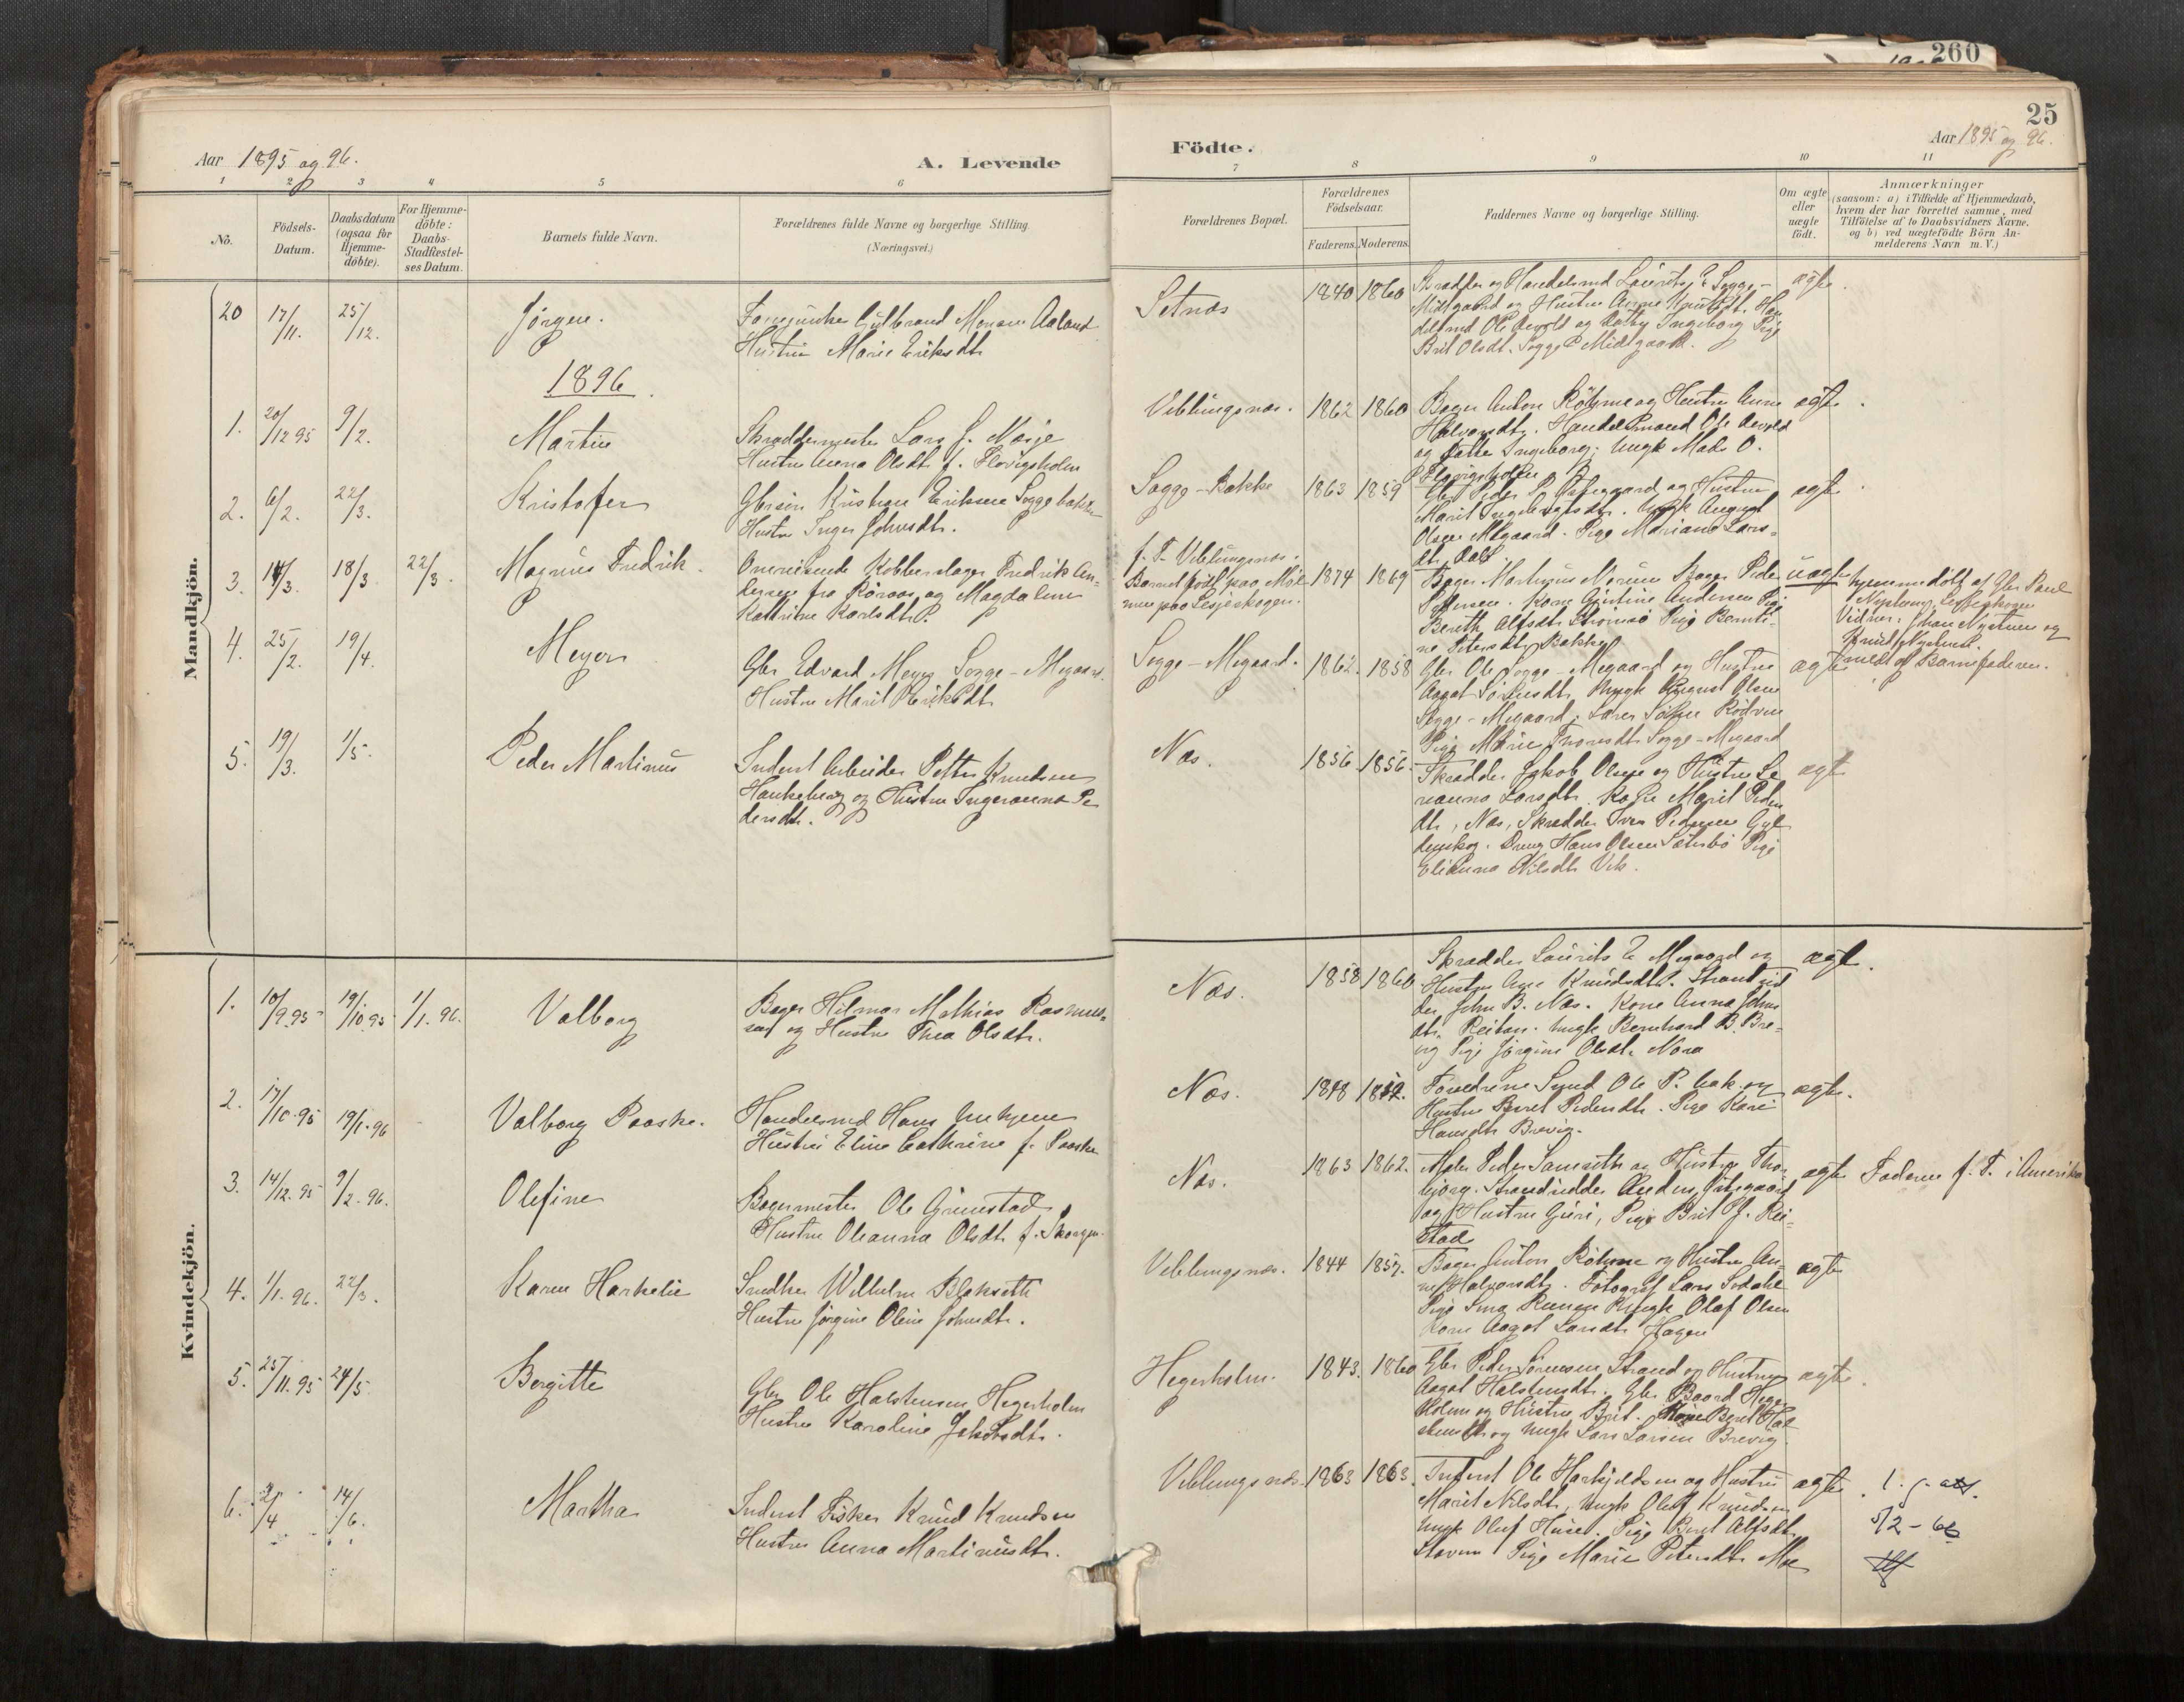 260
25
Aar 1895 og 96.
A. Levende
Födte.
Aar 1895 og 96.
1 2 3 4 5 6 7 8 9 10 11
No.
Födsels-
Datum.
Daabsdatum
(ogsaa for
Hjemme-
döbte).
For Hjemme-
döbte:
Daabs-
Stadfæstel-
ses Datum.
Barnets fulde Navn.
Forældrenes fulde Navne og borgerlige Stilling
(Næringsvei.)
Forældrenes Bopæl.
Forældrenes
Födselsaar.
Faderens. Moderens.
Faddernes Navne og borgerlige Stilling.
Om ægte
eller
uægte
födt.
Anmærkninger
(saasom: a) i Tilfælde af Hjemmedaab,
hvem der har forrettet samme, med
Tilföielse af to Daabsvidners Navne,
og b) ved uægtefödte Börn An-
melderens Navn m. V.)
Mandkjön.
20 17/11. 25/12. Jörgen.
Gulbrand Monsen Aaland
Hustru Marie Eriksdtr
Setnæs
1840 1860
Skrædder og Handelsmd Laurits E Sogge-
Midtgaard og Hustru Anne Knutsdt. Han
delsmd Ole Aevold og Datter Ingeborg Pige
Brit Olsdt. Sogge Midtgaard.
ægte.
1896.
1. 20/12 95 9/2. Martin
Skræddermester Lars J. Næsje
Hustru Anna Olsdtr f. Flovigsholm
Veblungsnæs.
1862 1860
Bager Anton Röhme og Hustru Anne
Halvorsdtr. Handelsmand Ole Aevold
og Datter Ingeborg; Ungk Mads O.
Flovigsholm
ægte.
2. 6/2. 22/3. Kristofer
Gbrsön Kristian Eriksen Soggebakke
Hustru Inger Johnsdtr.
Sogge-Bakke
1863 1859
Gbr Peder P. Östegaard og Hustru
Marit Ingebrigtsdtr. Ungk August
Olsen Megaard. Pige Mariane Lars-
dtr Dale
ægte.
3. 14/3. 18/3 22/3. Magnus Fredrik.
Omreisende Kobberslager Fredrik An-
dersen fra Röraas og Magdalene
Kathrine Karlsdtr.
f. T. Veblungsnæs.
Barnet födt paa Möl-
men paa Lesjeskogen.
1874 1869
Bager Martinus Norum Bager Peder
Pedersen. Kone Gjertine Andersen Pige
Bereth Alfsdtr Strömsö Pige Bernti-
ne Petersdtr Bakke
uægte
hjemmedöbt af Gbr Paul
Nystuen, Lesjeskogen
Vidner: Johan Nystuen og
Knud Nystuen.
meldt af Barnefaderen.
4. 25/2. 19/4. Meyer
Gbr Edvard Meyer Sogge-Megaard.
Hustru Marit Eriksdtr
Sogge-Megaard.
1862. 1858
Gbr Ole Sogge-Megaard og Hustru
Aagot Torkelsdtr Ungk August Olsen
Sogge-Megaard; Lærer Söfren Rödven
Pige Marie Ivarsdtr Sogge-Megaard
ægte
5. 19/3. 1/5. Peder Martinus
Inderst Arbeider Petter Knudsen
Haukeberg og Hustru Ingeranna Pe
dersdtr.
Næs.
1856. 1856.
Skrædder Jakob Olsen og Hustru Le
nanna Larsdtr. Kone Marit Peders
dtr, Næs, Skrædder Iver Pedersen Gyl
denskog. Dreng Hans Olsen Sæterbö Pige
Elianna Nilsdtr Vik.
ægte
Kvindekjön.
1. 10/9.95 19/10 95 1/1. 96. Valborg
Bager Hilmar Mathias Rasmus-
sen og Hustru Thea Olsdtr.
Næs.
1858 1860
Skrædder Laurits E Megaard og
Hustru Ane Knudsdtr. Strandsid
der John B. Næs. Kone Anna Johns
dtr. Reitan. Ungk Bernhard B. Bre-
vig Pige Jörgine Olsdtr Nora
ægte.
2. 17/10.95 19/1.96 Valborg Paaske.
Handelsmd Hans Unhjem
Hustru Eline Cathrine f. Paaske
Næs.
1848 1852.
Ole P. Aak og
Hustru Beret Pedersdtr. Pige Kari
Hansdtr Brevig.
ægte.
3. 14/12.95 9/2.96. Olefine
Bagermester Ole Grimstad
Hustru Oleanna Olsdtr f. Skorgen.
Næs.
1863 1862.
Maler Peder Landseth og Hustru Thor
björg. Strandsidder Anders Östegaard
og Hustru Guri, Pige Brit J. Rei-
stad
ægte
Faderen f. T. i Amerika
4. 1/1.96. 22/3. Karen Harkelie
Snedker Wilhelm Blakseth
Hustru Jörgine Oline Johnsdtr.
Veblungsnæs.
1844 1857.
Bager Anton Röhme og Hustru An-
ne Halvorsdtr. Fotograf Lars Södahl
Pige Ungk Olaf Olsen
Kone Aagot Larsdtr Hagen
ægte
5. 25/11.95 24/5. Bergitte
Gbr Ole Halstensen Hegerholm
Hustru Karoline Jakobsdtr.
Hegerholm.
1843. 1860
Gbr Peder Sörensen Strand og Hustru
Aagot Halstensdtr. Gbr Baard Heger
holm og Hustru Brit. Kone Beret Hal
stensdtr og Ungk Lars Larsen Brevig.
ægte.
6. 2/4 14/6. Martha
Inderst Fisker Knud Knudsen
Hustru Anna Martinusdtr.
Veblungsnæs.
1863 1863.
Inderst Ole Harkjeldsen og Hustru
Marit Nilsdtr, Ungk Oluf Knudsen
Ungk Oluf Huses. Pige Beret Alfsdtr
Pige Marie Petersdtr Moe
ægte.
1. g. att.
5/2 - 66